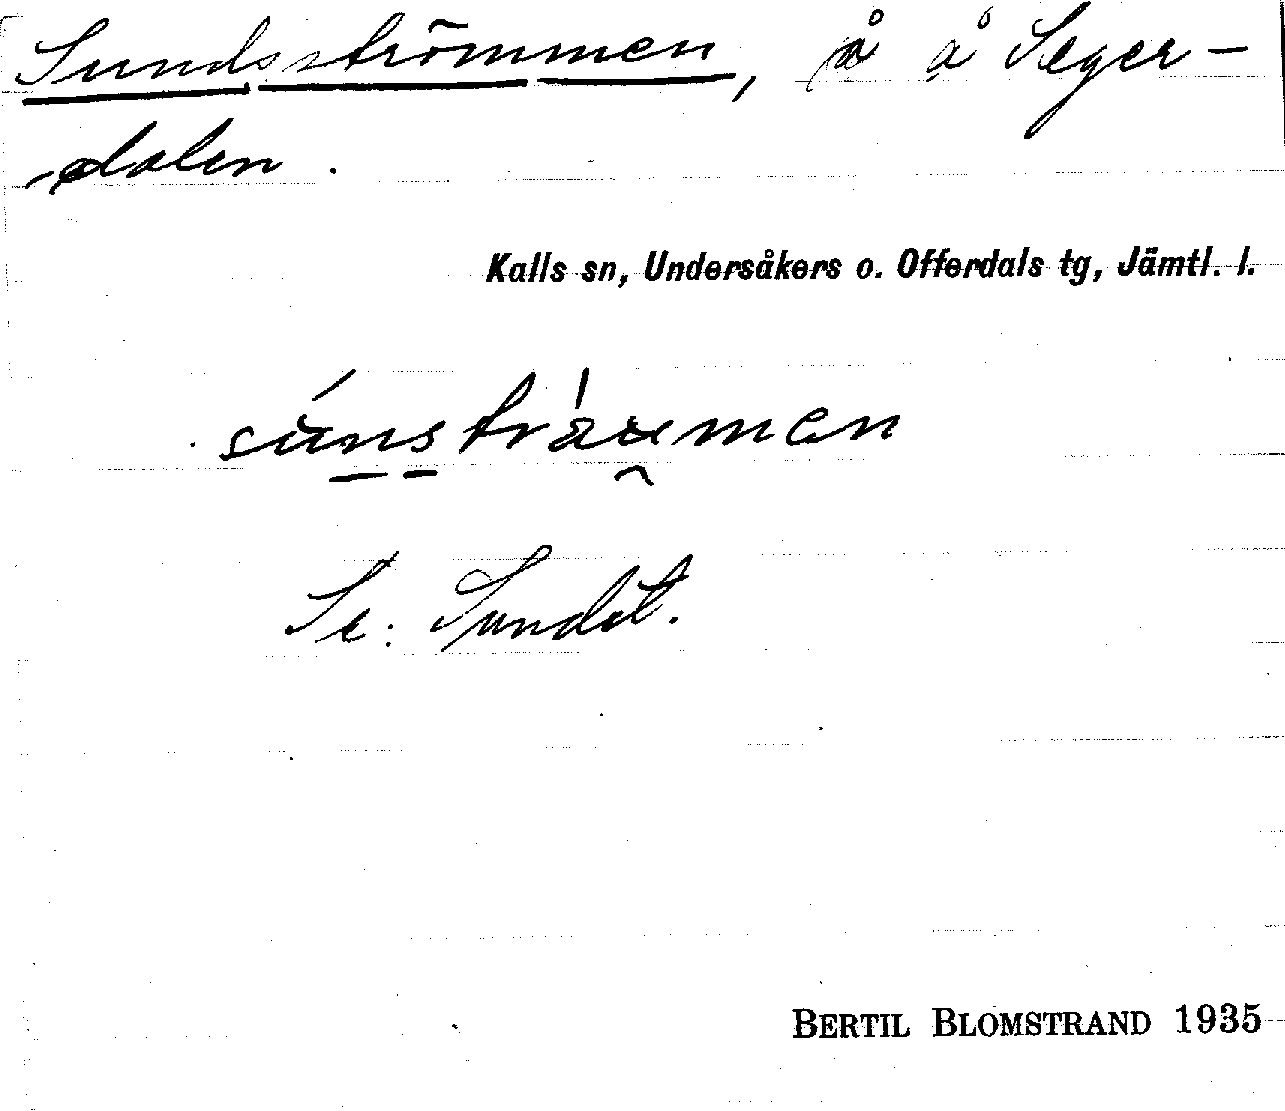 Sundsströmmen, å å Seger-
dalen.
Kalls sn, Undersåkers o. Offerdals tg, Jämtl. l.
súnstráu̯men
Se: Sundet.
BERTIL BLOMSTRAND 1935